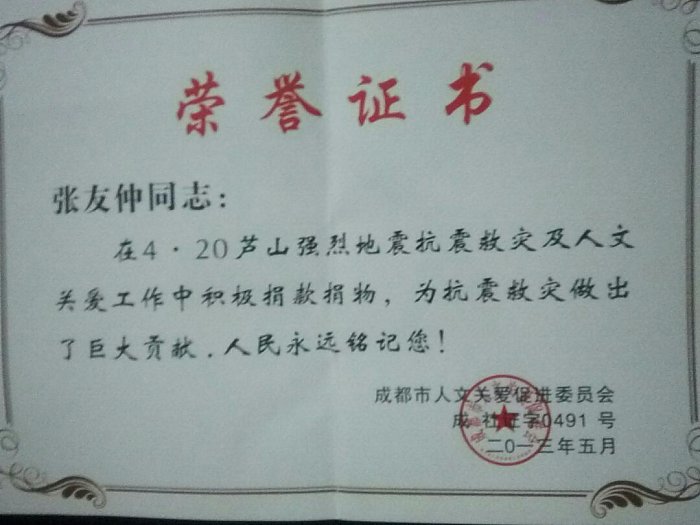 荣誉证书
张友仲同志：
在4·20芦山强烈地震抗震救灾及人文
关爱工作中积极捐款捐物，为抗震救灾做出
了巨大贡献．人民永远铭记您！
成都市人文关爱促进委员会
成 社证字0491 号
二0一三年五月